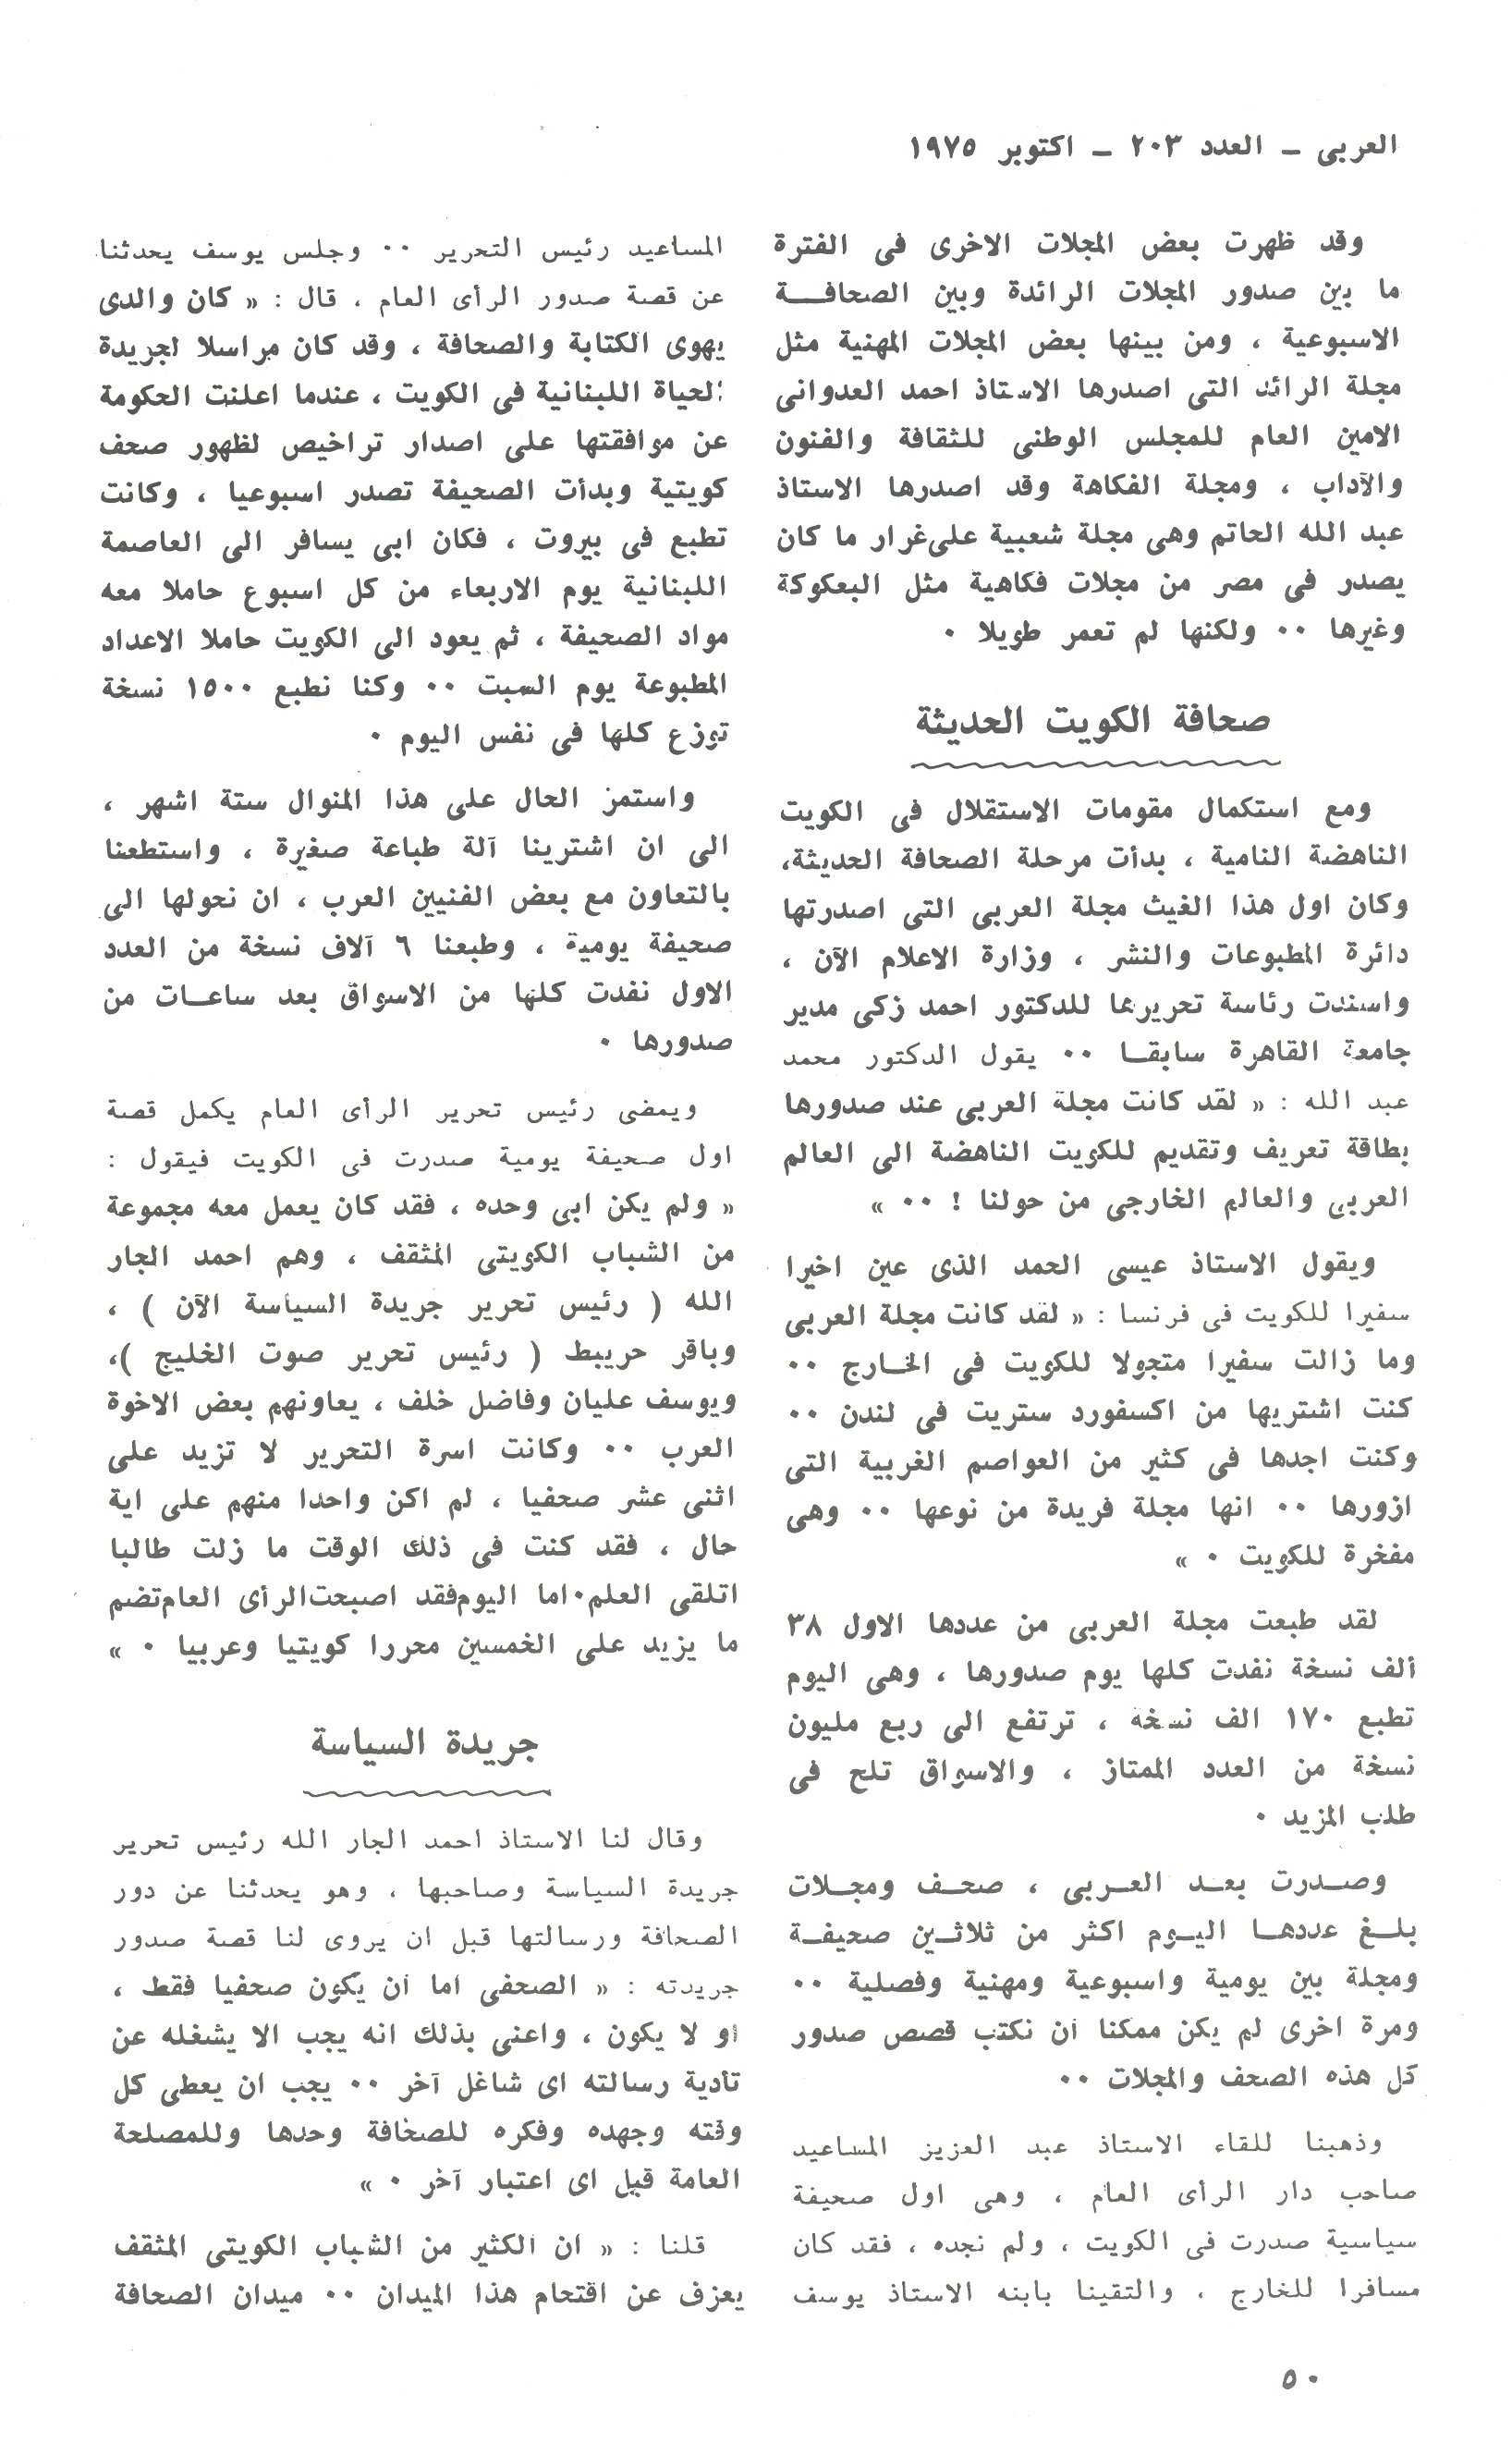 العربى ـ العدد ٢٠٣ ـ اكتوبر ١٩٧٥
وقد ظهرت بعض المجلات الاخرى فى الفترة
ما بين صدور المجلات الرائدة وبين الصحافة
الاسبوعية ، ومن بينها بعض المجلات المهنية مثل
مجلة الرائد التى اصدرها الاستاذ احمد العدوانى
الامين العام للمجلس الوطنى للثقافة والفنون
والآداب ، ومجلة الفكاهة وقد اصدرها الاستاذ
عبد الله الحاتم وهى مجلة شعبية على غرار ما كان
يصدر فى مصر من مجلات فكاهية مثل البعكوكة
وغيرها ٠٠ ولكنها لم تعمر طويلا ٠
صحافة الكويت الحديثة
ومع استكمال مقومات الاستقلال فى الكويت
الناهضة النامية ، بدأت مرحلة الصحافة الحديثة،
وكان اول هذا الغيث مجلة العربى التى اصدرتها
دائرة المطبوعات والنشر ، وزارة الاعلام الآن ،
واسندت رئاسة تحريرها للدكتور احمد زكى مدير
جامعة القاهرة سابقا ٠٠ يقول الدكتور محمد
عبد الله : « لقد كانت مجلة العربى عند صدورها
بطاقة تعريف وتقديم للكويت الناهضة الى العالم
العربى والعالم الخارجى من حولنا ! ٠٠ »
ويقول الاستاذ عيسى الحمد الذى عين اخيرا
سفيرا للكويت فى فرنسا : « لقد كانت مجلة العربى
وما زالت سفيرا متجولا للكويت فى الخارج ٠٠
كنت اشتريها من اكسفورد ستريت فى لندن ٠٠
وكنت اجدها فى كثير من العواصم الغربية التى
ازورها ٠٠ انها مجلة فريدة من نوعها ٠٠ وهى
مفخرة للكويت ٠ »
لقد طبعت مجلة العربى من عددها الاول ٣٨
ألف نسخة نفدت كلها يوم صدورها ، وهى اليوم
تطبع ١٧٠ الف نسخة ، ترتفع الى ربع مليون
نسخة من العدد الممتاز ، والاسواق تلح فى
طلب المزيد ٠
وصدرت بعد العربى ، صحف ومجلات
بلغ عددها اليوم اكثر من ثلاثين صحيفة
ومجلة بين يومية واسبوعية ومهنية وفصلية ٠٠
ومرة اخرى لم يكن ممكنا ان نكتب قصص صدور
كل هذه الصحف والمجلات ٠٠
وذهبنا للقاء الاستاذ عبد العزيز المساعيد
صاحب دار الرأى العام ، وهى اول صحيفة
سياسية صدرت فى الكويت ، ولم نجده ، فقد كان
مسافرا للخارج ، والتقينا بابنه الاستاذ يوسف
المساعيد رئيس التحرير ٠٠ وجلس يوسف يحدثنا
عن قصة صدور الرأى العام ، قال : « كان والدى
يهوى الكتابة والصحافة ، وقد كان مراسلا لجريدة
الحياة اللبنانية فى الكويت ، عندما اعلنت الحكومة
عن موافقتها على اصدار تراخيص لظهور صحف
كويتية وبدأت الصحيفة تصدر اسبوعيا ، وكانت
تطبع فى بيروت ، فكان ابى يسافر الى العاصمة
اللبنانية يوم الاربعاء من كل اسبوع حاملا معه
مواد الصحيفة ، ثم يعود الى الكويت حاملا الاعداد
المطبوعة يوم السبت ٠٠ وكنا نطبع ١٥٠٠ نسخة
توزع كلها فى نفس اليوم ٠
واستمر الحال على هذا المنوال ستة اشهر ،
الى ان اشترينا آلة طباعة صغيرة ، واستطعنا
بالتعاون مع بعض الفنيين العرب ، ان نحولها الى
صحيفة يومية ، وطبعنا ٦ آلاف نسخة من العدد
الاول نفدت كلها من الاسواق بعد ساعات من
صدورها ٠
ويمضى رئيس تحرير الرأى العام يكمل قصة
اول صحيفة يومية صدرت فى الكويت فيقول :
« ولم يكن ابى وحده ، فقد كان يعمل معه مجموعة
من الشباب الكويتى المثقف ، وهم احمد الجار
الله ( رئيس تحرير جريدة السياسة الآن ) ،
وباقر خريبط ( رئيس تحرير صوت الخليج )،
ويوسف عليان وفاضل خلف ، يعاونهم بعض الاخوة
العرب ٠٠ وكانت اسرة التحرير لا تزيد على
اثنى عشر صحفيا ، لم اكن واحدا منهم على اية
حال ، فقد كنت فى ذلك الوقت ما زلت طالبا
اتلقى العلم٠اما اليوم فقد اصبحت الرأى العام تضم
ما يزيد على الخمسين محررا كويتيا وعربيا ٠ »
جريدة السياسة
وقال لنا الاستاذ احمد الجار الله رئيس تحرير
جريدة السياسة وصاحبها ، وهو يحدثنا عن دور
الصحافة ورسالتها قبل ان يروى لنا قصة صدور
جريدته : « الصحفى اما ان يكون صحفيا فقط ،
او لا يكون ، واعنى بذلك انه يجب الا يشغله عن
تأدية رسالته اى شاغل آخر ٠٠ يجب ان يعطى كل
وقته وجهده وفكره للصحافة وحدها وللمصلحة
العامة قبل اى اعتبار آخر ٠ »
قلنا : « ان الكثير من الشباب الكويتى المثقف
يعزف عن اقتحام هذا الميدان ٠٠ ميدان الصحافة
٥٠